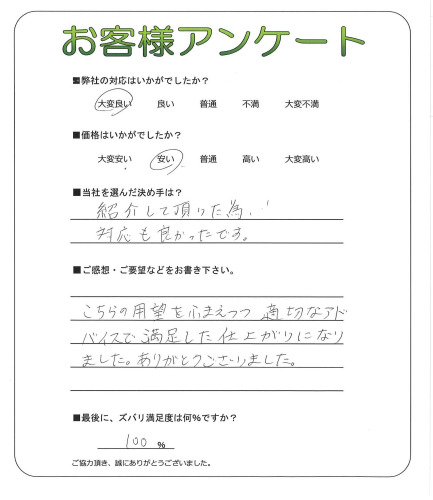 お客様アンケート
■弊社の対応はいかがでしたか？
大変良い 良い 普通 不満 大変不満
■価格はいかがでしたか？
大変安い 安い 普通 高い 大変高い
■当社を選んだ決め手は？
紹介して頂けた為、
対応も良かったです。
■ご感想・ご要望などをお書き下さい。
こちらの用望をふまえつつ 適切なアド
バイスで満足した仕上がりになり
ました。ありがとうございました。
■最後に、ズバリ満足度は何％ですか？
100 ％
ご協力頂き、誠にありがとうございました。